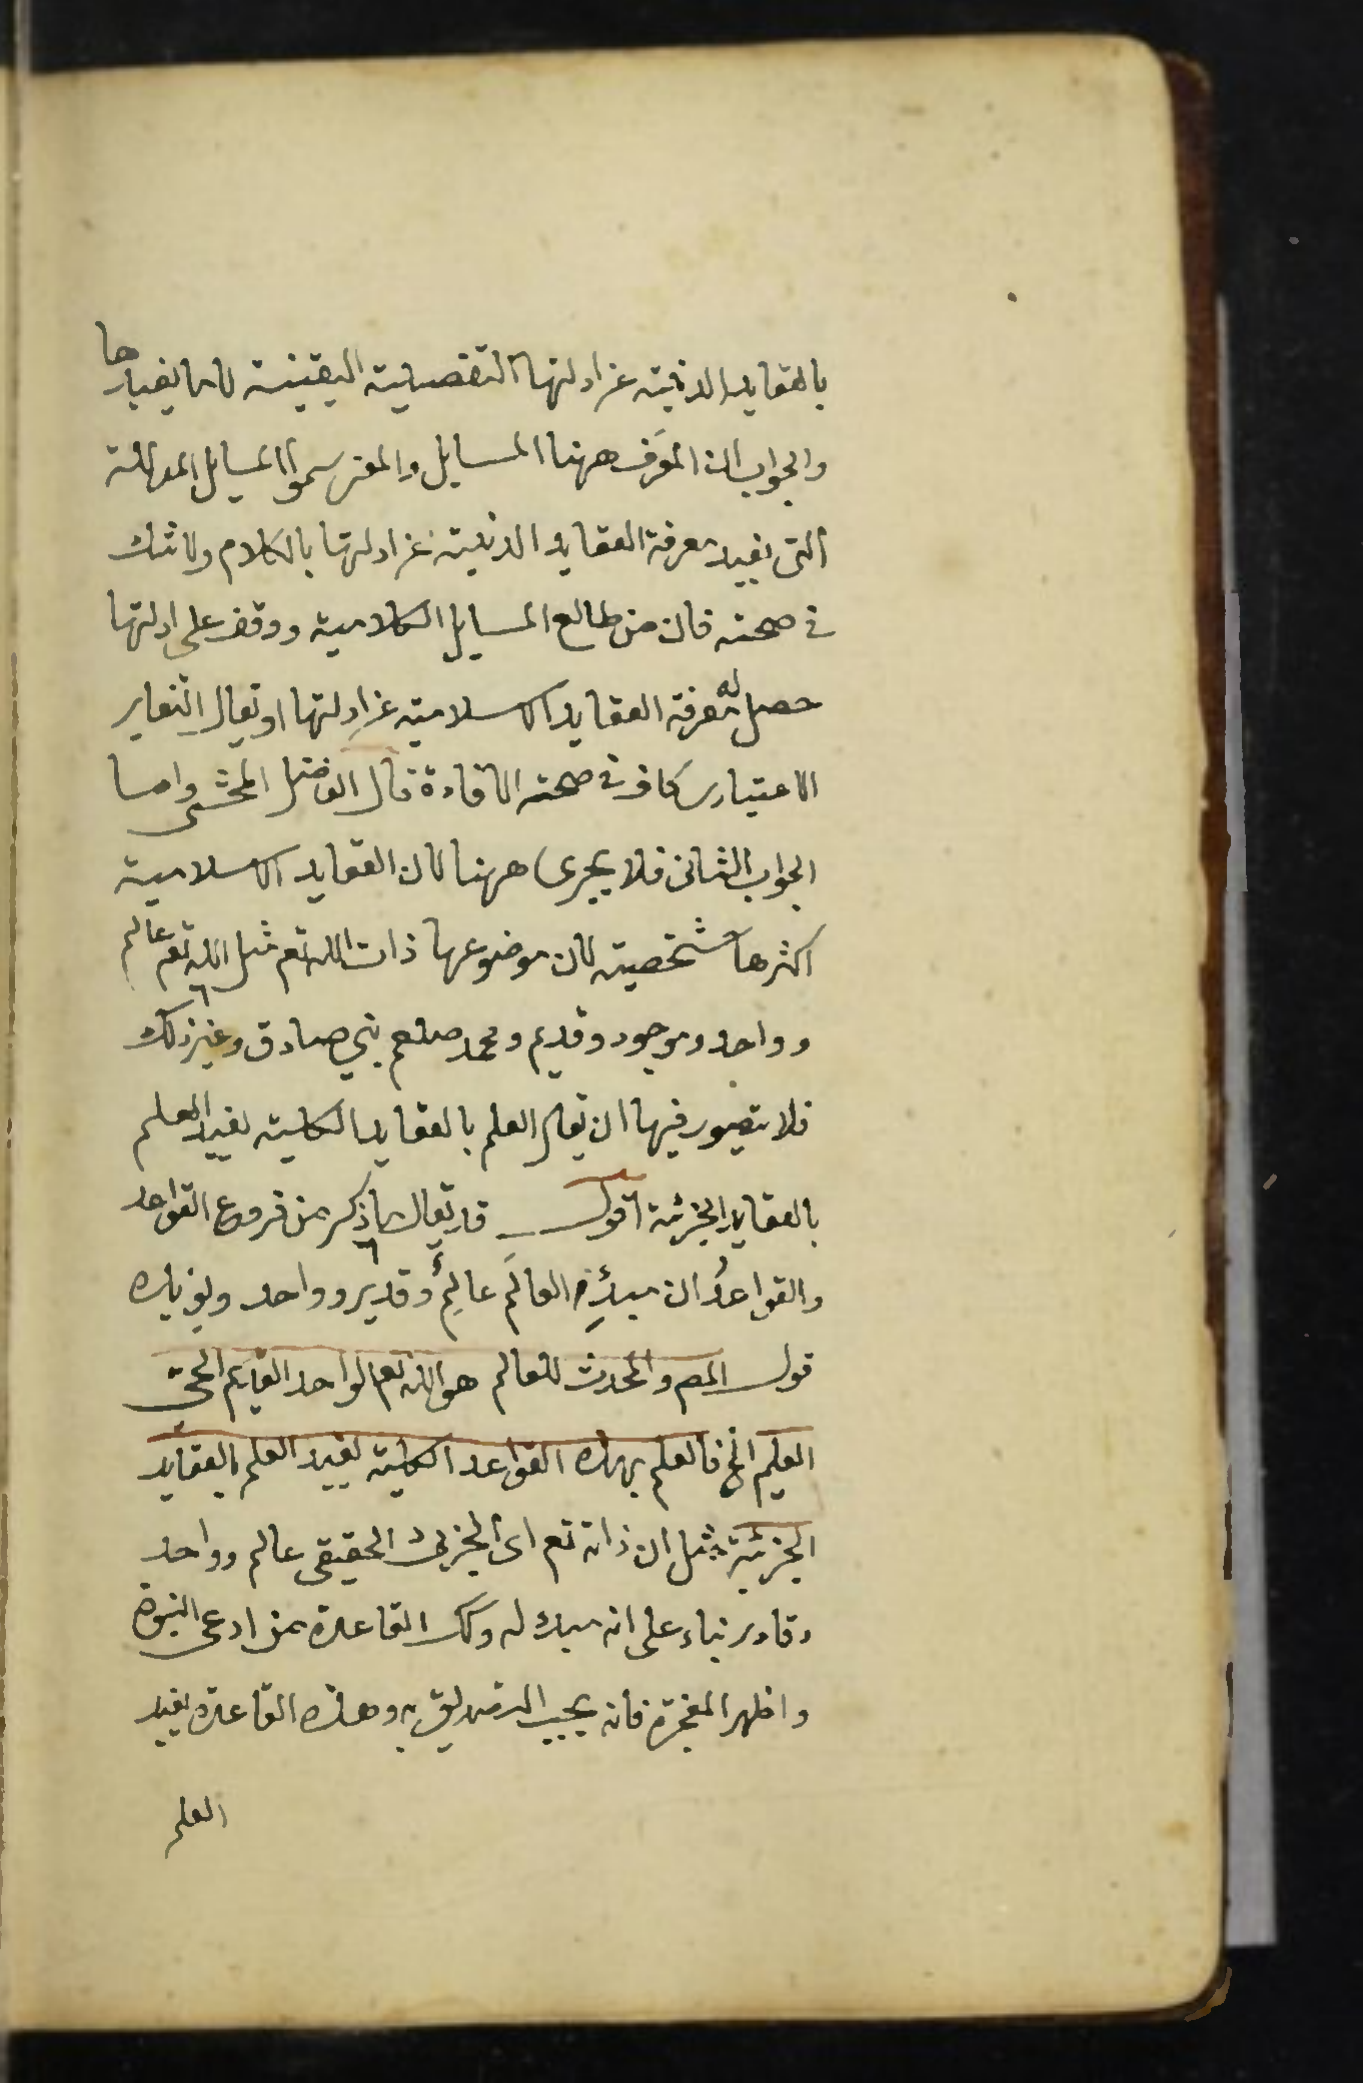 بالعقايد الدينية عن ادلتها التفصيلية اليقينية لا ما يفيدها
والجواب ان المعرف ههنا المسايل والمعنى سموا المسايل المدللة
التى يفيد معرفة العقايد الدينية عن ادلتها بالكلام ولا شك
فى صحته فان من طالع المسايل الكلامية ووقف على ادلتها
حصل له معرفة العقايد الاسلامية عن ادلتها او يقال التغاير
الاعتبارى كاف فى صحته الافادة قال الفاضل المحشى واما
الجواب الثانى فلا يجرى ههنا لان العقايد الاسلامية
اكثرها شخصية لان موضوعها ذات الله تعم مثل الله تعم عالم
وواحد وموجود وقديم ومحمد صلعم نبى صادق وغير ذلك
فلا يتصور فيها ان يقال العلم بالعقايد الكلية يفيد العلم
بالعقايد الجزئية اقول قد يقال ما ذكر من فروع القواعد
والقواعد ان مبدئ العالم عالم وقدير وواحد ويؤيده
قول المص والمحدث للعالم هو الله تعم الواحد القايم الحى
العليم الخ فالعلم بهذه القواعد الكلية يفيد العلم بالعقايد
الجزئية مثل ان ذاته تعم اى الجزئى الحقيقى عالم وواحد
وقادر بناء على انه مبدء له وكك القاعدة من ادعى النبوة
واظهر المعجزة فانه يجب التصديق به وهذه القاعدة يفيد
العلم